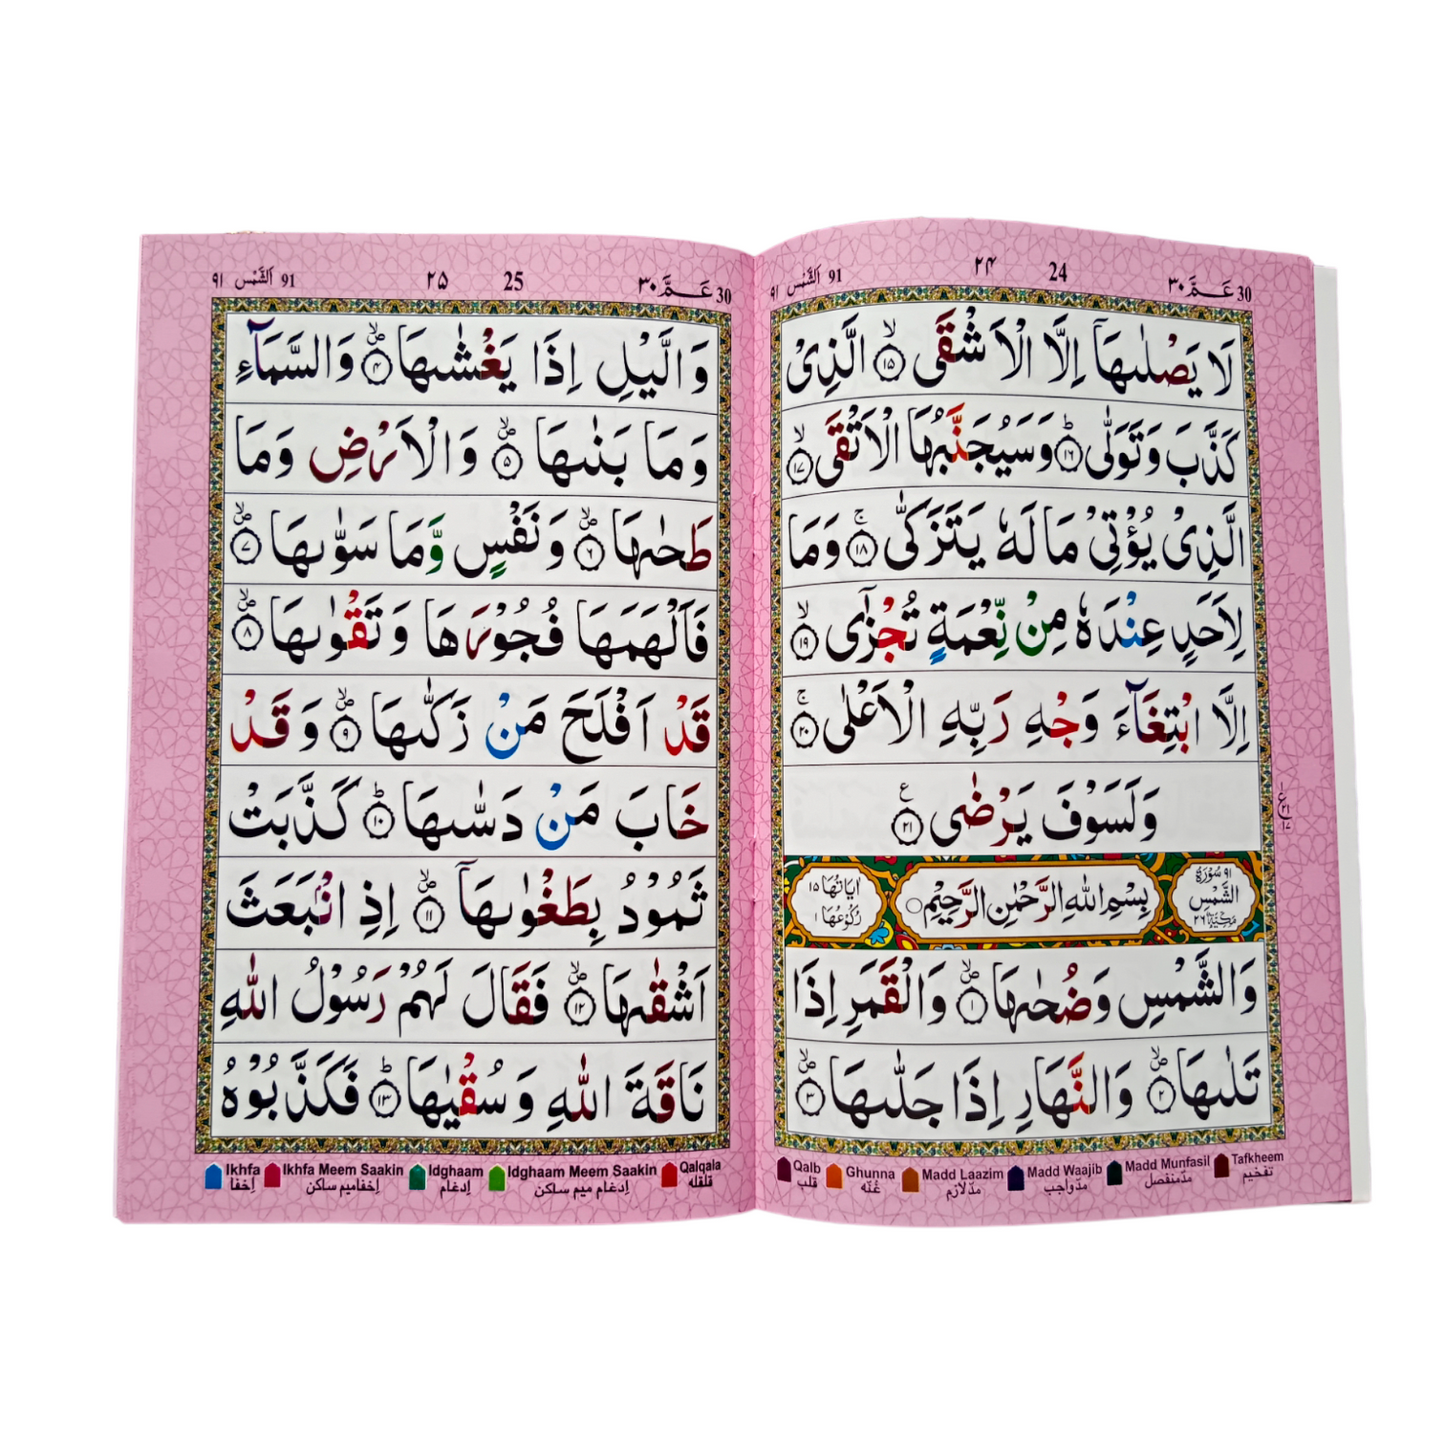 30 عَمَّ ٣٠ 24 ٢٤ 91 اَلشَّمْسِ ٩١
لَا يَصْلٰىهَاۤ اِلَّا الْاَشْقَى ۙ‏﴿۱۵﴾ الَّذِىْ
كَذَّبَ وَتَوَلّٰى ؕ‏﴿۱۶﴾ وَسَيُجَنَّبُهَا الْاَتْقَى ۙ‏﴿۱۷﴾
الَّذِىْ يُؤْتِىْ مَا لَهٗ يَتَزَكّٰى ۚ‏﴿۱۸﴾ وَمَا
لِاَحَدٍ عِنْدَهٗ مِنْ نِّعْمَةٍ تُجْزٰٓى ۙ‏﴿۱۹﴾
اِلَّا ابْتِغَآءَ وَجْهِ رَبِّهِ الْاَعْلٰى ۚ‏﴿۲۰﴾
وَلَسَوْفَ يَرْضٰى ‏﴿۲۱﴾ ع
ع ٢١ ١٧
٩١ سُوْرَةُ الشَّمْسِ مَكِّيَّةٌ ٢٦ بِسْمِ اللّٰهِ الرَّحْمٰنِ الرَّحِيْمِ ○ اٰيَاتُهَا ١٥ رُكُوْعُهَا ١
وَالشَّمْسِ وَضُحٰىهَا ۙ‏﴿۱﴾ وَالْقَمَرِ اِذَا
تَلٰىهَا ۙ‏﴿۲﴾ وَالنَّهَارِ اِذَا جَلّٰىهَا ۙ‏﴿۳﴾
Qalb قلب Ghunna غُنّه Madd Laazim مدّلازم Madd Waajib مدّواجب Madd Munfasil مدّمنفصل Tafkheem تفخيم
30 عَمَّ ٣٠ 25 ٢٥ 91 اَلشَّمْسِ ٩١
وَالَّيْلِ اِذَا يَغْشٰىهَا ۙ‏﴿۴﴾ وَالسَّمَآءِ
وَمَا بَنٰىهَا ۙ‏﴿۵﴾ وَالْاَرْضِ وَمَا
طَحٰىهَا ۙ‏﴿۶﴾ وَنَفْسٍ وَّمَا سَوّٰىهَا ۙ‏﴿۷﴾
فَاَلْهَمَهَا فُجُوْرَهَا وَتَقْوٰىهَا ۙ‏﴿۸﴾
قَدْ اَفْلَحَ مَنْ زَكّٰىهَا ۙ‏﴿۹﴾ وَقَدْ
خَابَ مَنْ دَسّٰىهَا ؕ‏﴿۱۰﴾ كَذَّبَتْ
ثَمُوْدُ بِطَغْوٰىهَاۤ ۙ‏﴿۱۱﴾ اِذِ انْۢبَعَثَ
اَشْقٰىهَا ۙ‏﴿۱۲﴾ فَقَالَ لَهُمْ رَسُوْلُ اللّٰهِ
نَاقَةَ اللّٰهِ وَسُقْيٰهَا ؕ‏﴿۱۳﴾ فَكَذَّبُوْهُ
Ikhfa اِخفا Ikhfa Meem Saakin اِخفاميم ساكن Idghaam اِدغام Idghaam Meem Saakin اِدغام ميم ساكن Qalqala قلقله